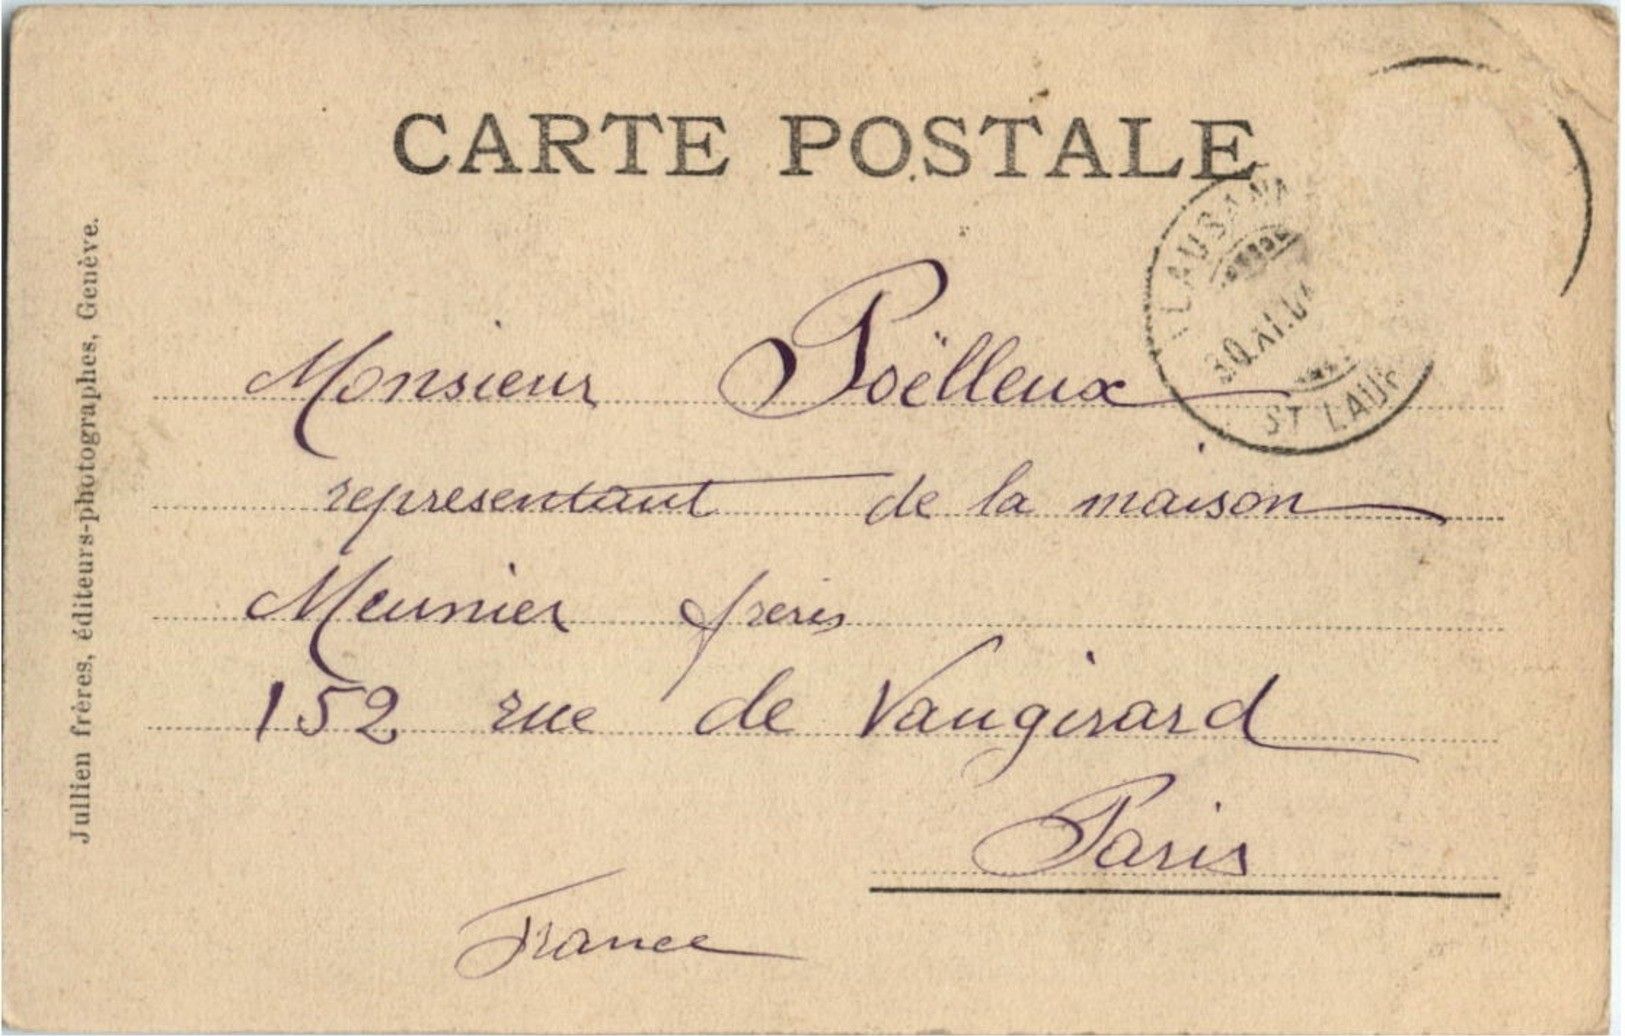 CARTE POSTALE
LAUSANN
30.XI.0
ST LAUR
Monsieur Poëlleux
representant de la maison
Meunier freres
152 rue de Vaugirard
Paris
France
Jullien frères, éditeurs-photographes, Genève.